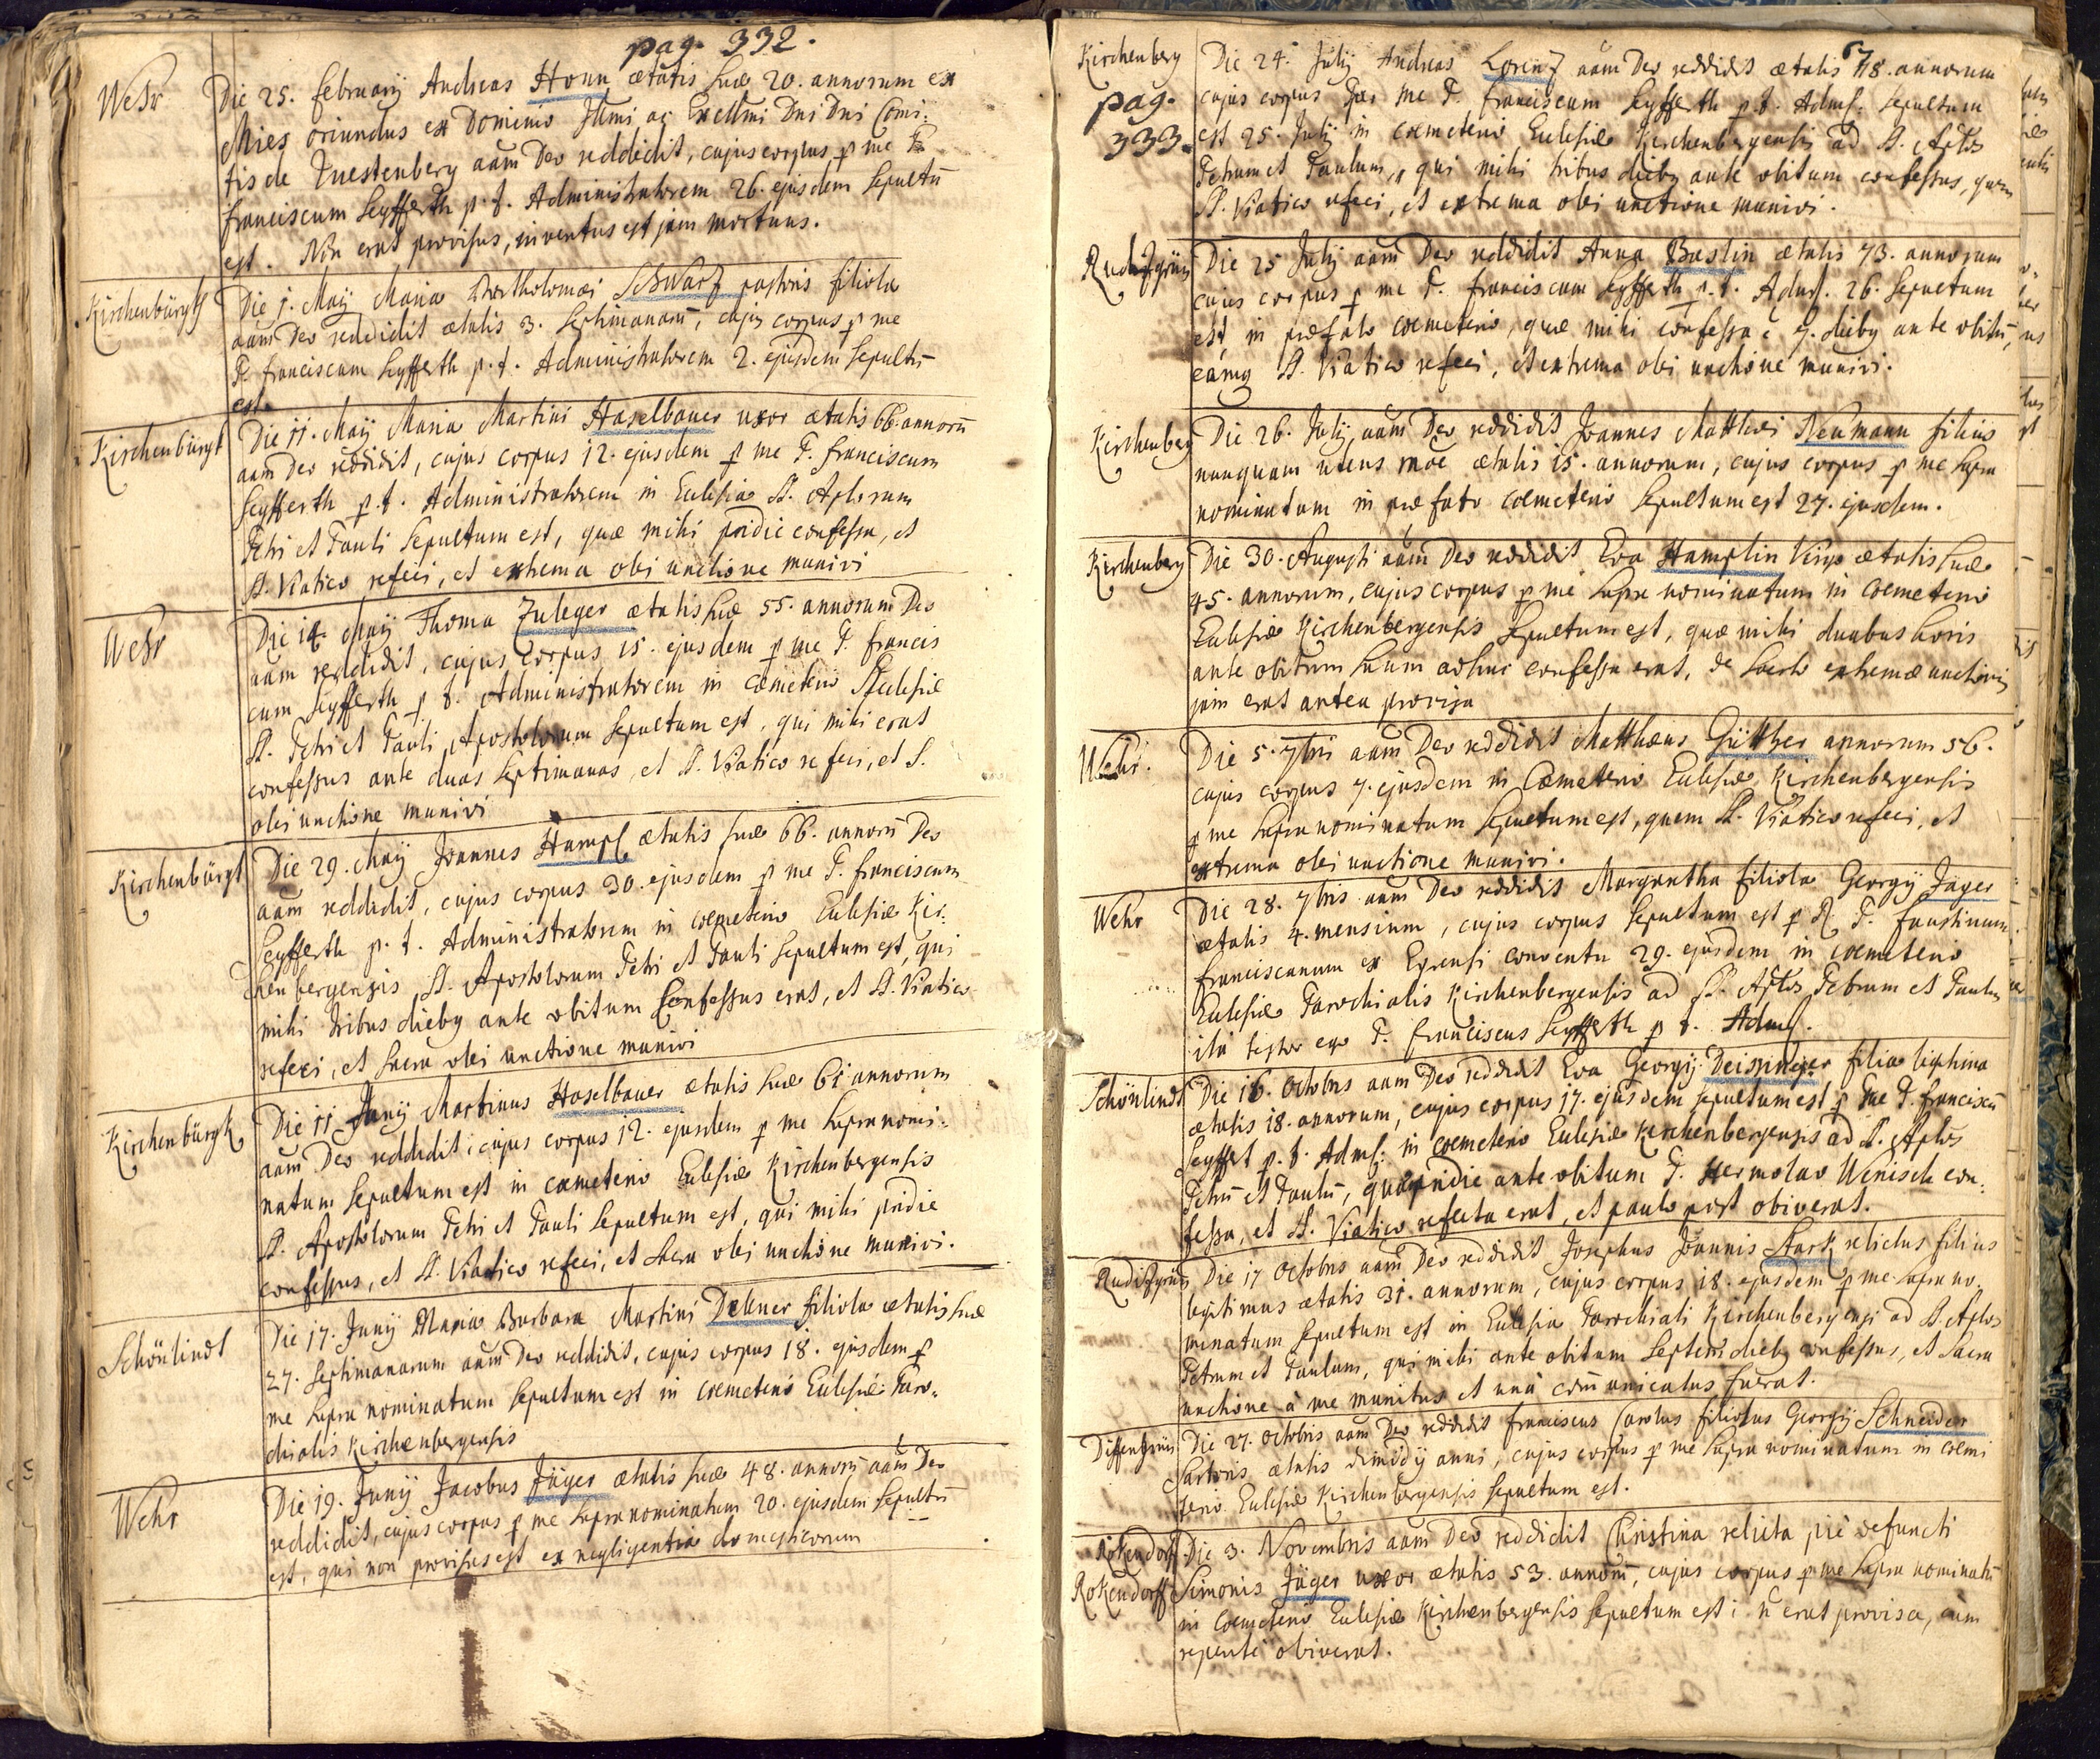 pag. 332.
Wehr
Die 25. february Andreas Honn ætatis suæ 20. annorum ex
Mies oriundus ex Dominio Illmi ac Excellmi Dni Dni Comi:
tis de Fuestenberg aam Deo reddidit, cujus corpus p me P.
franciscum Seyfferth p. t. Administratorem 26. ejusdem Sepultu
est. Non erat provisus, inventus est jam mortuus.
Kirchenbürgk
Die 1. Maÿ Maria Bartholomæi Schwarz pastoris filiola
aam Deo reddidit ætatis 3. Septimanaru, cujus corpus p me
P. franciscum Seyfferth p. t. Administratorem 2. ejusdem Sepultu
est.
Kirchenbürgk
Die 11. Maÿ Maria Martini Haselbauer uxor ætatis 66. annoru
aam Deo reddidit, cujus corpus 12. ejusdem p me P. franciscum
Seyfferth p. t. Administratorem in Eclesia SS. Aplorum
Petri et Pauli Sepultum est, quæ mihi pridie confessa, et
SS. Viatico refeci, et extrema olei unctione munivi
Wehr
Die 14. Maÿ Thoma Zuleger ætatis suæ 55. annorum Deo
aam reddidit, cujus corpus 15. ejusdem p me P. francis
cum Seyfferth p t. Administratorem in cæmeterio Eclesiæ
SS. Petri et Pauli Apostolorum Sepultum est, qui mihi erat
confessus ante duas Septimanas, et SS. Viatico refeci, et S.
olei unctione munivi
Kirchenbürgk
Die 29. Maÿ Joannes Hampl ætatis suæ 66. annoru Deo
aam reddidit, cujus corpus 30. ejusdem p me P. franciscum
Seyfferth p. t. Administratorem in cœmeterio Eclesiæ Kir:
chenbergensis SS. Apostolorum Petri et Pauli Sepultum est, qui
mihi tribus dieby ante obitum Confessus erat, et SS. Viatico
refeci, et Sacra olei unctione munivi
Kirchenbürgk
Die 11 Junÿ Martinus Haselbauer ætatis suæ 61 annorum
aam Deo reddidit, cujus corpus 12. ejusdem p me Supra nomi:
natum Sepultum est in cæmeterio Eclesiæ Kirchenbergensis
SS. Apostolorum Petri et Pauli Sepultum est, qui mihi pridie
confessus, et SS. Viatico refeci, et Sacra olei unctione munivi.
Schönlindt
Die 17. Junÿ Maria Barbara Martini Dekner filiola ætatis suæ
27. Septimanarum aam Deo reddidit, cujus corpus 18. ejusdem p
me Supra nominatum Sepultum est in cœmeterio Eclesiæ Paro:
chialis Kirchenbergensis
Wehr
Die 19. Junÿ Jacobus Jäger ætatis suæ 48. annoru aam Deo
reddidit, cujus corpus p me Supra nominatum 20. ejusdem Sepultu
est, qui non provisus est ex negligentia domesticorum
67
Kirchenberg
pag.
333.
Die 24. Julÿ Andreas Lorenz aam Deo reddidit ætatis 78. annorum
cujus corpus per me P. franciscum Seyfferth p. t. Admst. Sepultum
est 25. Julÿ in cœmeterio Eclesiæ Kirchenbergensis ad SS. Aplos
Petrum et Paulum, qui mihi tribus dieby ante obitum confessus, quem
SS. Viatico refeci, et extrema olei unctione munivi.
Rudizgrün
Die 25 Julÿ aam Deo reddidit Anna Bastin ætatis 73. annorum
cujus corpus p me P. franciscum Seyfferth p. t. Admst. 26. Sepultum
est in præfato cœmeterio, quæ mihi confessa e 7. dieby ante obitu,
eamq SS. Viatico refeci, et extrema olei unctione munivi.
Kirchenberg
Die 26. Julÿ aam Deo reddidit Joannes Matthæi Neumann filius
nunquam utens raoe ætatis 15. annorum, cujus corpus p me Supra
nominatum in præfato cœmeterio Sepultum est 27. ejusdem.
Kirchenberg
Die 30. Augusti aam Deo reddidit Eva Hamplin Virgo ætatis suæ
45. annorum, cujus corpus p me Supra nominatum in cœmeterio
Eclesiæ Kirchenbergensis Sepultum est, quæ mihi duabus horis
ante obitum suum adhuc confessa erat, de Sacto extremæ unctionis
jam erat antea provisa
Wehr.
Die 5. 7bris aam Deo reddidit Matthæus Gütther annorum 56.
cujus corpus 7. ejusdem in Cæmeterio Eclesiæ Kirchenbergensis
p me Supra nominatum Sepultum est, quem SS. Viatico refeci, et
extrema olei unctione munivi.
Wehr
Die 28. 7bris aam Deo reddidit Margaretha filiola Georgÿ Jäger
ætatis 4. mensium, cujus corpus Sepultum est p R. P. faustinum
franciscanum ex Egrensi conventu 29. ejusdem in cœmeterio
Eclesiæ Parochialis Kirchenbergensis ad SS. Aplos Petrum et Paulum
ita testor ego P. franciscus Seyfferth p t. Admst.
Schönlindt
Die 16. Octobris aam Deo reddidit Eva Georgÿ Deisinger filia legitima
ætatis 18. annorum, cujus corpus 17. ejusdem sepultum est p me P. franciscu
Seyffert p. t. Admst: in cœmeterio Eclesiæ Kirchenbergensis ad SS. Aplos
Petru et Paulu, quæ pridie ante obitum P. Hermolao Wenisch con:
fessa, et SS. Viatico refecta erat, et paulo post obiverat.
Rudizgrün
Die 17 Octobris aam Deo reddidit Josephus Joannis Stark relictus filius
legitimus ætatis 31. annorum, cujus corpus 18. ejusdem p me Supra no:
minatum Sepultum est in Eclesia Parochiali Kirchenbergensi ad SS. Aplos
Petrum et Paulum, qui mihi ante obitum Septem dieby confessus, et Sacra
unctione à me munitus et unà comunicatus fuerat.
Diffengrün
Die 27. Octobris aam Deo reddidit franciscus Carolus filiolus Georgÿ Schneider
Sartoris ætatis dimidÿ anni, cujus corpus p me Supra nominatum in cœme
terio Eclesiæ Kirchenbergensis Sepultum est.
Rokendorf
Rokendorff
Die 3. Novembris aam Deo reddidit Christina relicta piè defuncti
Simonis Jäger uxor ætatis 53. annoru, cujus corpus p me Supra nominatu
in cœmeterio Eclesiæ Kirchenbergensis Sepultum est; n erat provisa, cum
repentè obiverat.